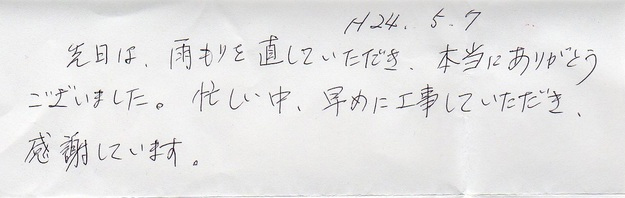 H24. 5. 7
先日は、雨もりを直していただき、本当にありがとう
ございました。忙しい中、早めに工事していただき、
感謝しています。